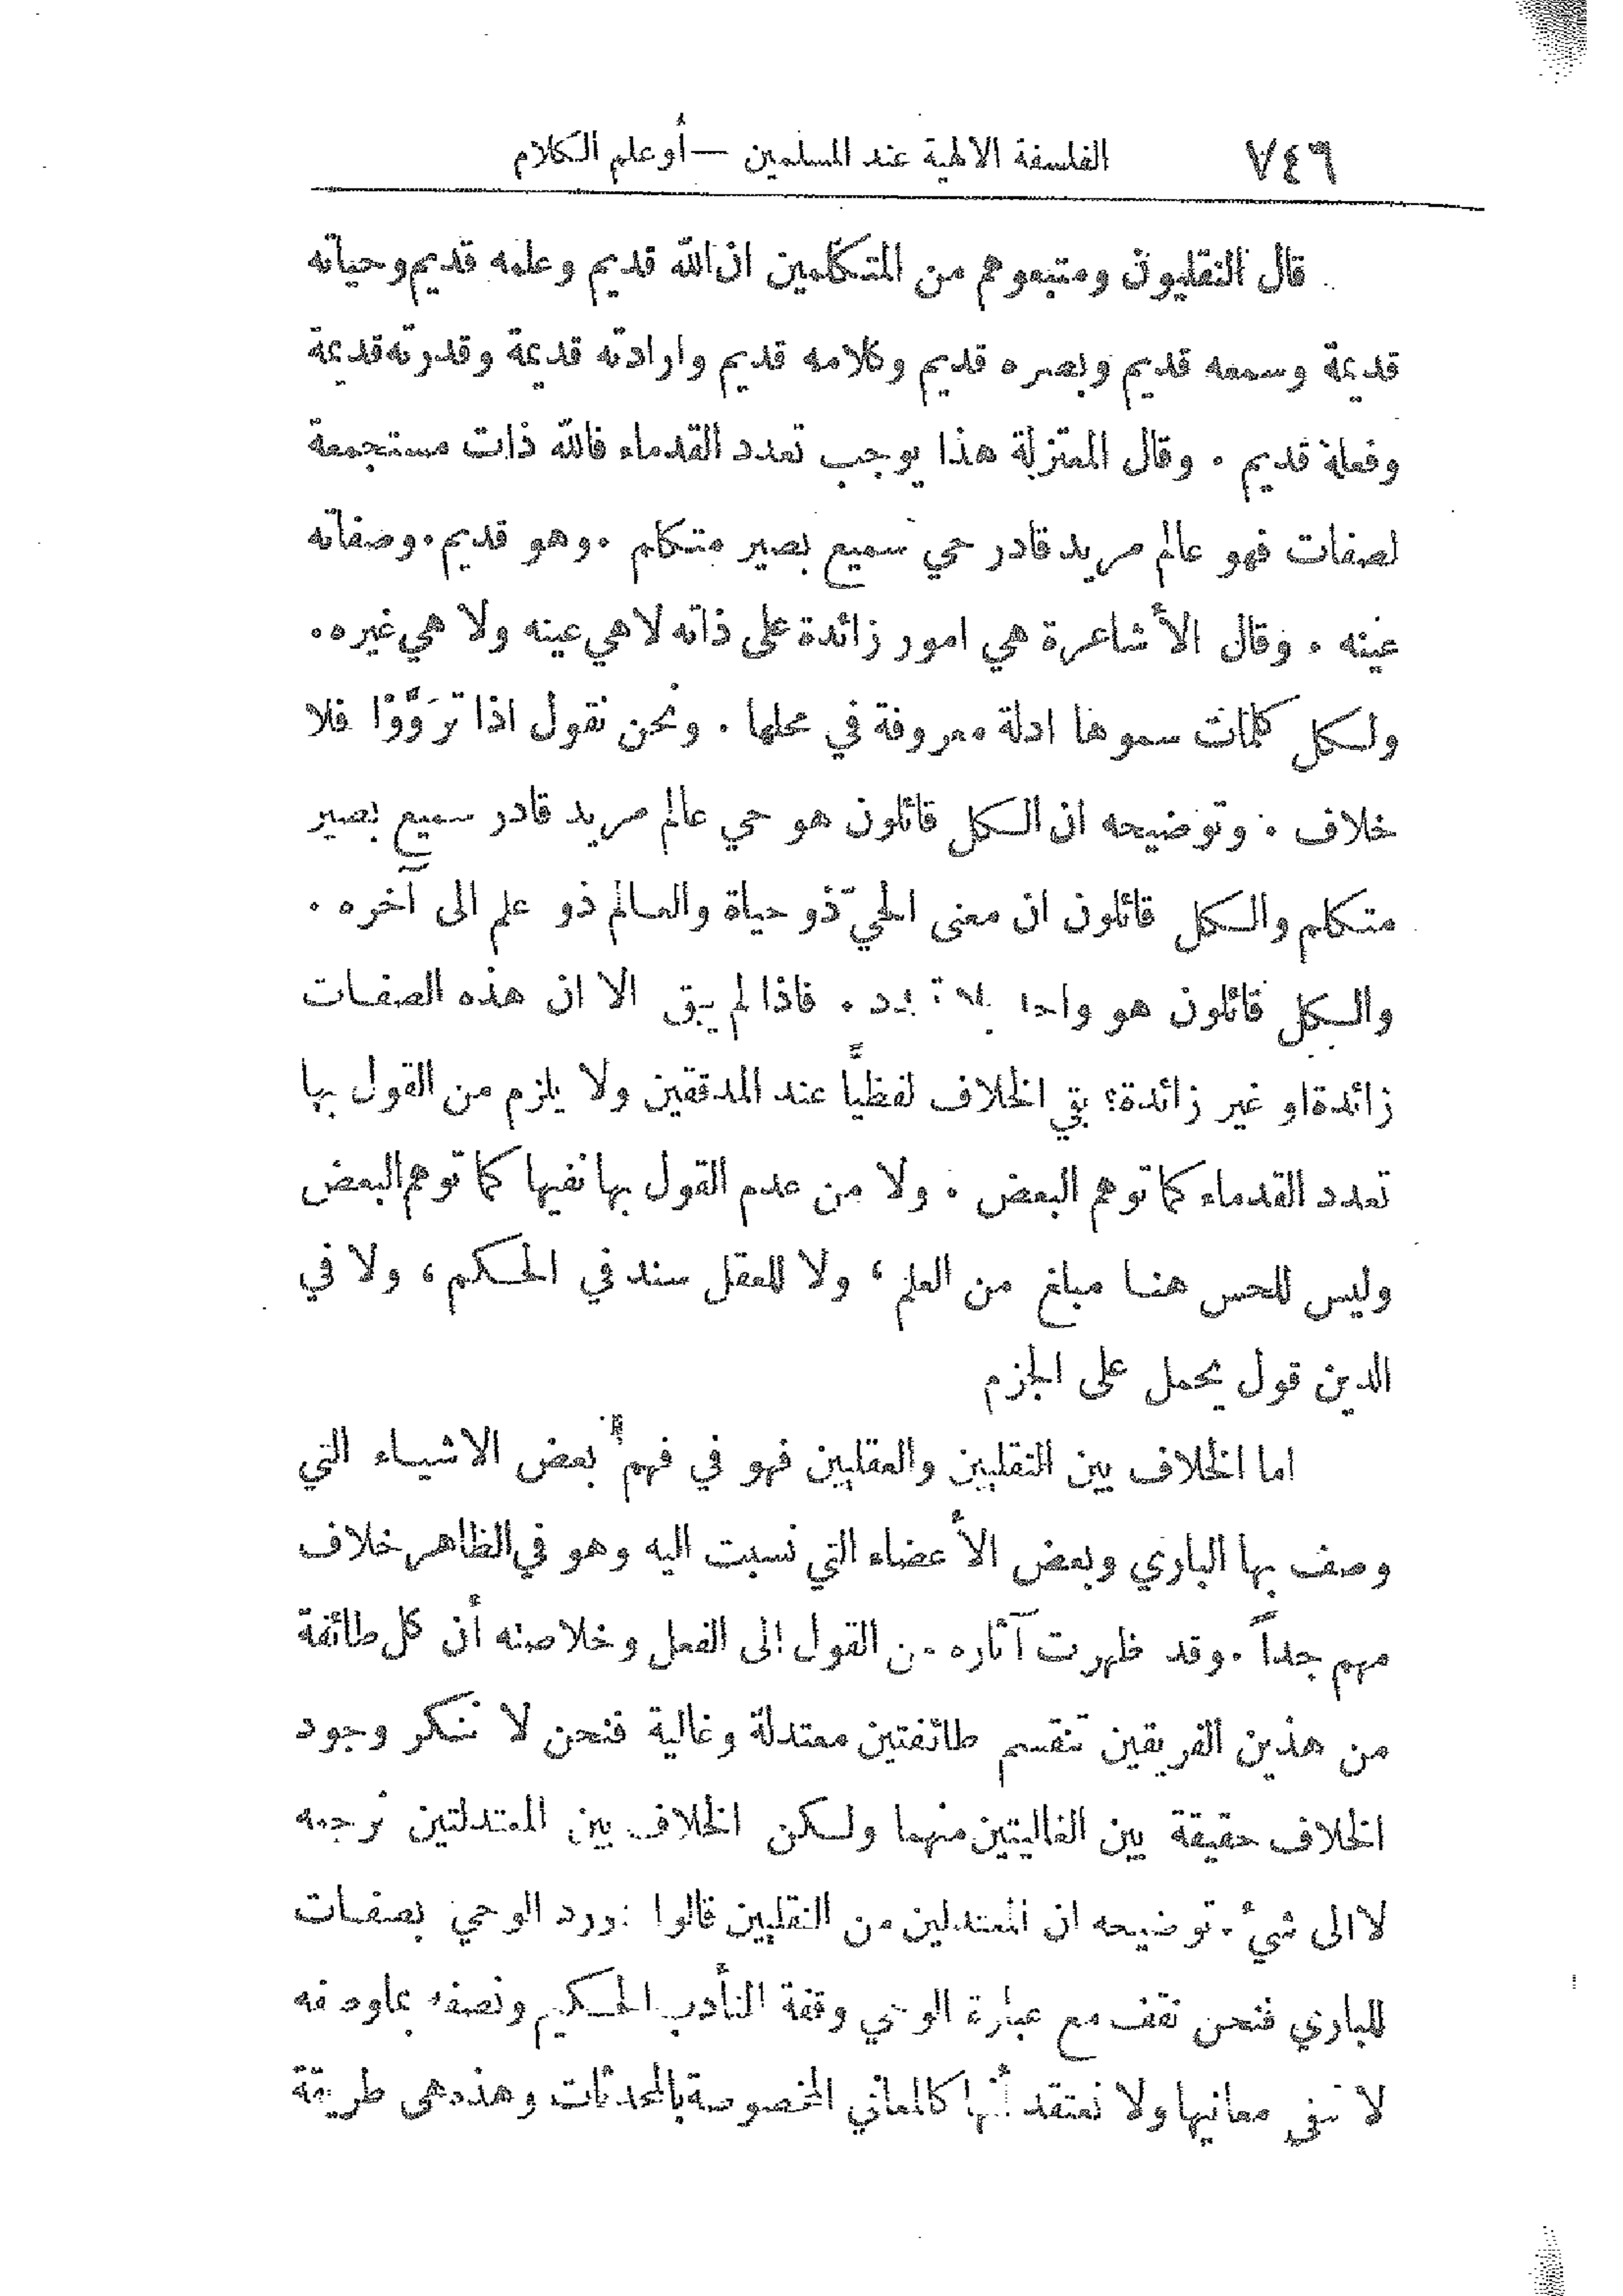 ٧٤٦ الفلسفة الالهية عند المسلمين — أو علم الكلام
قال النقليون ومتبعوهم من المتكلمين ان الله قديم وعلمه قديم وحياته
قديمة وسمعه قديم وبصره قديم وكلامه قديم وارادته قديمة وقدرته قديمة
وفعله قديم . وقال المعتزلة هذا يوجب تعدد القدماء فالله ذات مستجمعة
لصفات فهو عالم مريد قادر حي سميع بصير متكلم . وهو قديم . وصفاته
عينه . وقال الأشاعرة هي امور زائدة على ذاته لا هي عينه ولا هي غيره .
ولكل كلمات سموها ادلة معروفة في محلها . ونحن نقول اذا تَرَوَّوْا فلا
خلاف . وتوضيحه ان الكل قائلون هو حي عالم مريد قادر سميع بصير
متكلم والكل قائلون ان معنى الحيّ ذو حياة والعالم ذو علم الى آخره .
والكل قائلون هو واحد بلا تعدد . فاذا لم يبق الا ان هذه الصفات
زائدة او غير زائدة؛ بقي الخلاف لفظياً عند المدققين ولا يلزم من القول بها
تعدد القدماء كما توهم البعض . ولا من عدم القول بها نفيها كما توهم البعض
وليس للحس هنا مبلغ من العلم ، ولا للعقل سند في الحكم ، ولا في
الدين قول يحمل على الجزم
اما الخلاف بين النقليين والعقليين فهو في فهم بعض الاشياء التي
وصف بها الباري وبعض الأعضاء التي نسبت اليه وهو في الظاهر خلاف
مهم جداً . وقد ظهرت آثاره من القول الى الفعل وخلاصته أن كل طائفة
من هذين الفريقين تنقسم طائفتين معتدلة وغالية فنحن لا ننكر وجود
الخلاف حقيقة بين الغاليتين منهما ولكن الخلاف بين المعتدلتين نرجعه
لا الى شيء . توضيحه ان المعتدلين من النقليين قالوا : ورد الوحي بصفات
للباري فنحن نقف مع عبارة الوحي وقفة التأدب الحكيم ونصفه بما وصفه
لا ننفي معانيها ولا نعتقد أنها كالمعاني المخصوصة بالمحدثات وهذه هي طريقة